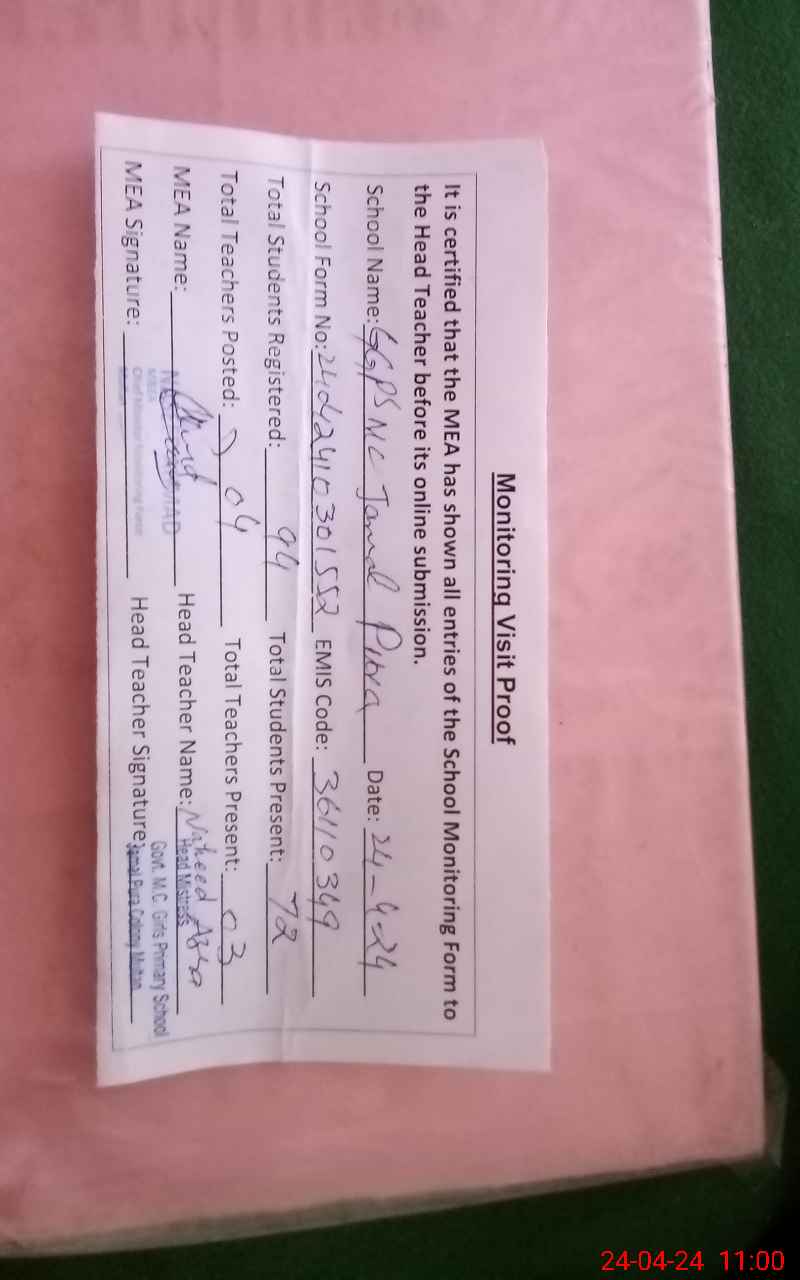 Monitoring Visit Proof
It is certified that the MEA has shown all entries of the School Monitoring Form to
the Head Teacher before its online submission.
School Name: GGPS MC Jamal Pura Date: 24-4-24
School Form No: EMIS Code: 36110349
Total Students Registered: 94 Total Students Present: 72
Total Teachers Posted: 04 Total Teachers Present: 03
MEA Name: Head Teacher Name: Naheed Azra
Head Mistress
MEA Signature: Head Teacher Signature:
Govt. M.C. Girls Primary School
Jamal Pura Colony Multan
24-04-24 11:00